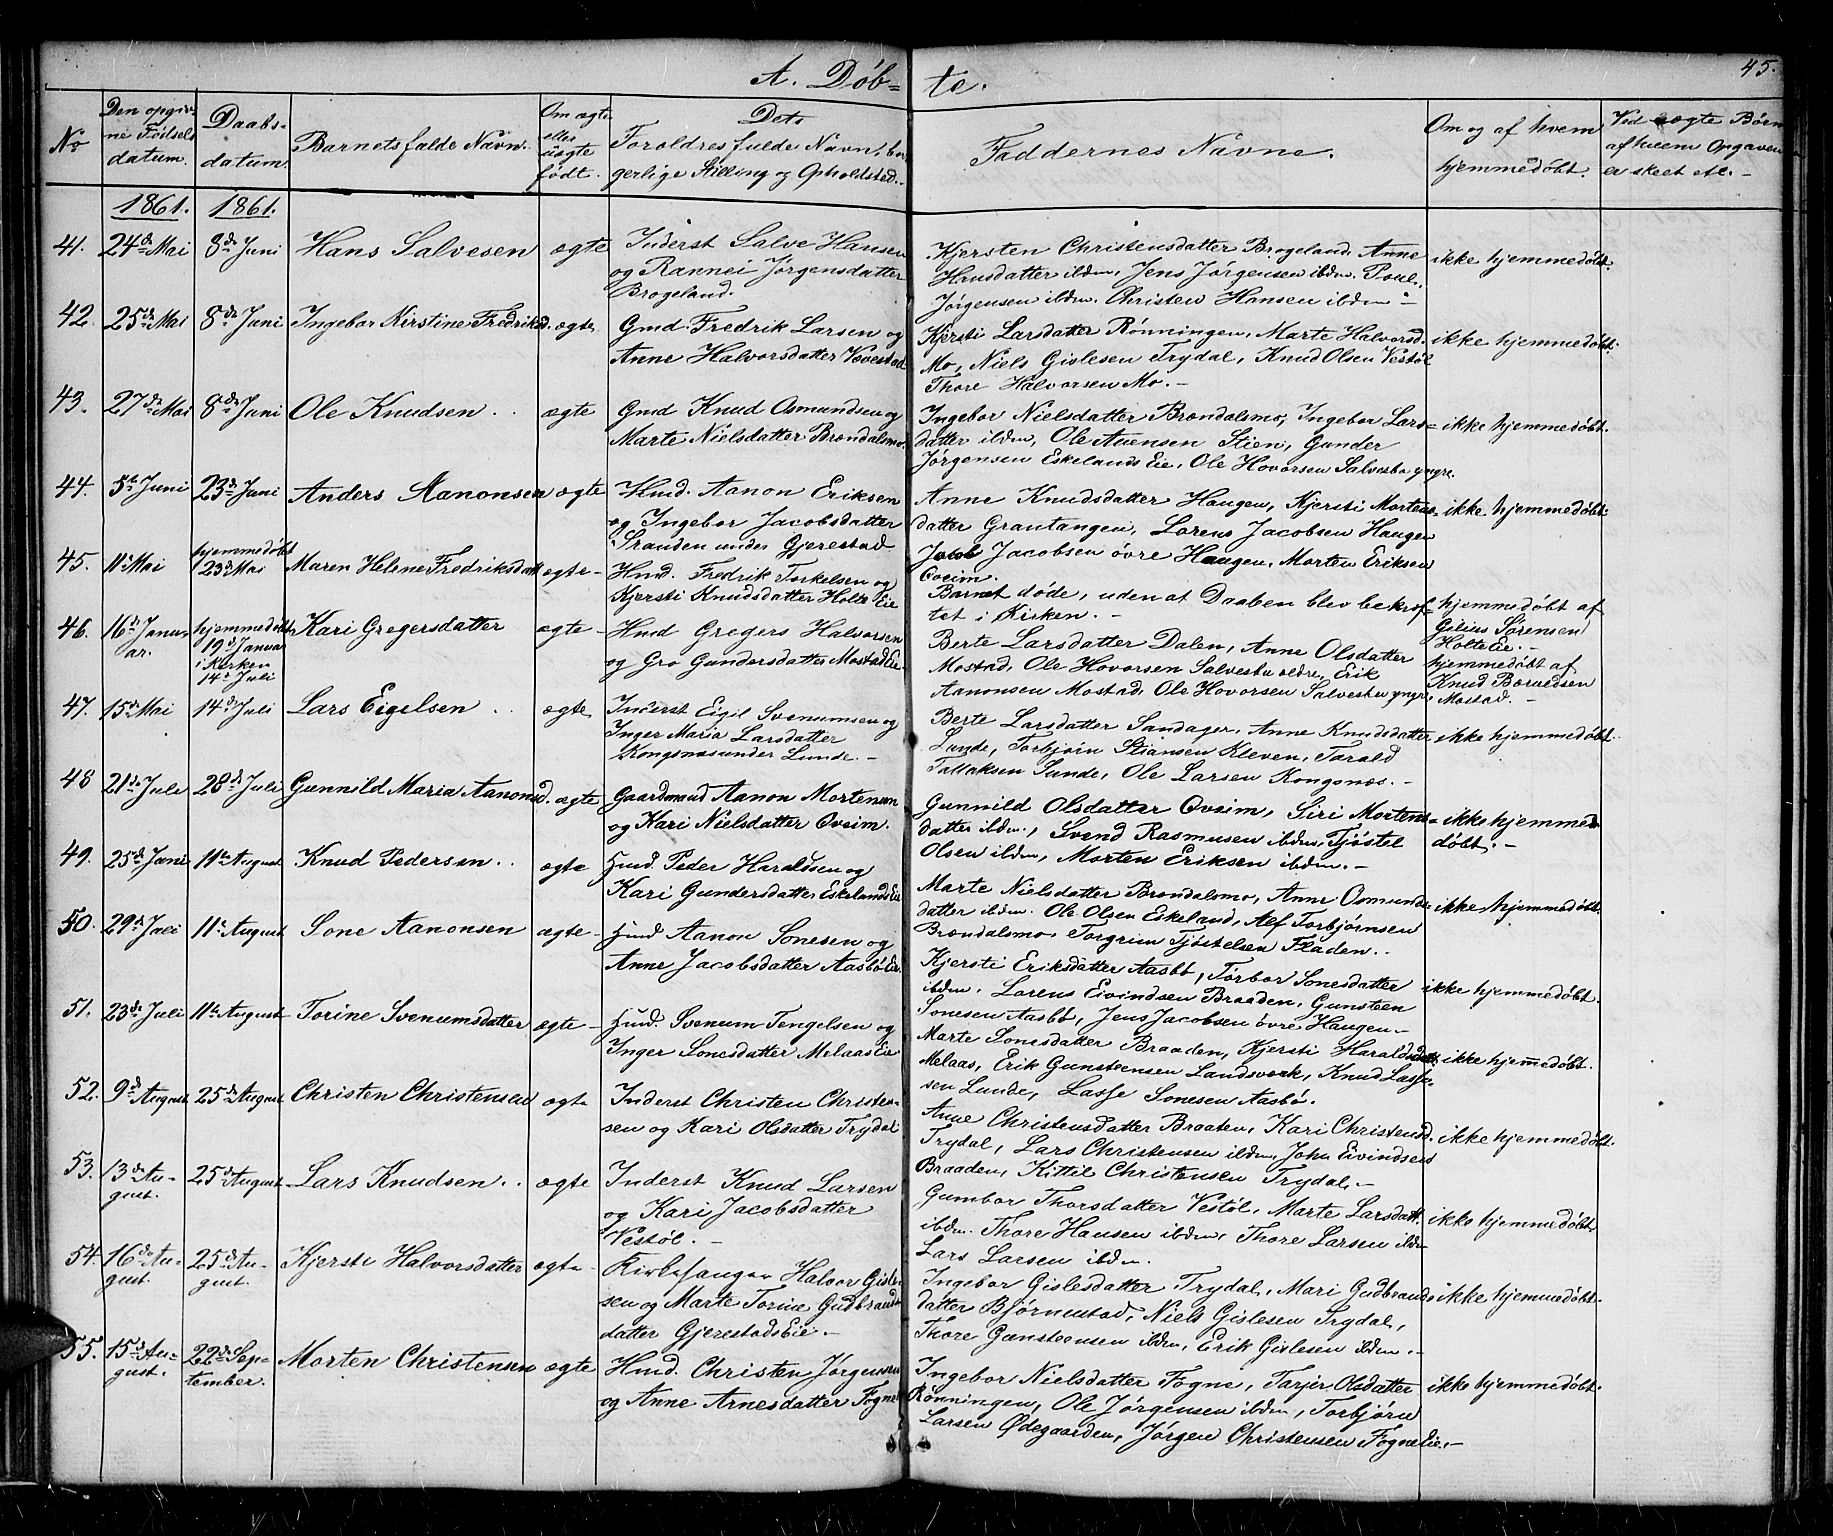 A. Döb-te.
45.
No
Den opgiv-
ne Fødsels
datum.
Daabs-
datum.
Barnets fulde Navn.
Om ægte
eller
uægte
født.
Dets
Foroldres fulde Navn, bor-
gerlige Stilling og Opholdsted.
Faddernes Navne.
Om og af hvem
hjemmedøbt.
Ved uægte Børn
af hvem Opgaven
er skeet etc. -
1861. 1861.
41. 24de Mai 8de Juni Hans Salvesen ægte
Inderst Salve Hansen
og Rannei Jørgensdatter
Brogeland.
Kjersten Christensdatter Brogeland, Anne
Hansdatter ibdm, Jens Jørgensen ibdm. Poul
Jørgensen ibdm. Christen Hansen ibdm -
ikke hjemmedøbt.
42. 25de Mai 8de Juni Ingebor Kirstine Fredriksd. ægte.
Gmd. Fredrik Larsen og
Anne Halvorsdatter Vævestad
Kjersti Larsdatter Rønningen, Marte Halvorsd.
Mo, Niels Gislesen Trydal, Knud Olsen Vestøl
Thore Halvorsen Mo. -
ikke hjemmedøbt.
43. 27de Mai 8de Juni Ole Knudsen . . ægte
Gmd Knud Osmundsen og
Marte Nielsdatter Brøndalsmo.
Ingebor Nielsdatter Brøndalsmo, Ingebor Lars-
datter ibdm, Ole Auensen Stien, Gunder
Jørgensen Eskelands Eie, Ole Hovorsen Salvesbu yngre.
ikke hjemmedøbt.
44. 5te Juni 23de Juni Anders Aanonsen ægte
Hmd. Aanon Eriksen
og Ingebor Jacobsdatter
Stranden under Gjerestad
Anne Knudsdatter Haugen, Kjersti Mortens-
datter Grautangen, Lorens Jacobsen Haugen
Jacob Jacobsen øvre Haugen, Morten Eriksen
Oveim.
ikke hjemmedøbt.
45. 11te Mai hjemmedøbt
23de Mai Maren Helene Fredriksdatt ægte -
Hmd. Fredrik Torkelsen og
Kjersti Knudsdatter Holte Eie
Barnet døde, uden at Daaben blev bekræf-
tet i Kirken. -
hjemmedøbt af
Gilius Sørensen
Holte Eie. -
46. 16de Janu-
ar. hjemmedøbt
19de Januar
i Kirken
14de Juli Kari Gregersdatter ægte -
Hmd Gregers Halvorsen
og Gro Gundersdatter Mostad Eie
Berte Larsdatter Dalen, Anne Olsdatter
Mostad, Ole Hovorsen Salvesbu ældre, Erik
Aanonsen Mostad, Ole Hovorsen Salvesbu yngre
hjemmedøbt af
Knud Boruldsen
Mostad. -
47. 15de Mai 14de Juli Lars Eigelsen . . ægte
Inderst Eigil Svenumsen og
Inger Maria Larsdatter
Kongsnæs under Lunde. -
Berte Larsdatter Sandager, Anne Knudsdatter
Lunde, Torbjørn Stiansen Kleven, Tarald
Tallaksen Lunde, Ole Larsen Kongsnæs. -
ikke hjemmedøbt.
48 21de Juli 28de Juli Gunnild Maria Aanonsd. ægte
Gaardmand Aanon Mortensen
og Kari Nielsdatter Oveim.
Gunnild Olsdatter Oveim, Siri Mortens-
datter ibdm., Svend Rasmusen ibdm, Tjøstel
Olsen ibdm, Morten Eriksen ibdm. -
ikke hjemme-
døbt. -
49. 25de Juni 11te August Knud Pedersen . . ægte
Hmd Peder Haraldsen og
Kari Gundersdatter Eskelands Eie
Marte Nielsdatter Brøndalsmo, Anne Osmunds-
datter ibdm. Ole Olsen Eskeland, Alf Torbjørnsen
Brøndalsmo Torgrim Tjøstelsen Fladen. . -
ikke hjemmedøbt.
50. 29de Juli 11te August Sone Aanonsen ægte -
Hmd Aanon Sonesen og
Anne Jacobsdatter Aasbø Eie
Kjersti Eriksdatter Aasbø, Torbor Sonesdatter
ibdm. Lorens Eivindsen Braaden, Gunsteen
Sonesen Aasbø, Jens Jacobsen øvre Haugen. -
ikke hjemmedøbt.
51. 23de Juli 11te August Torine Svenumsdatter ægte -
Hmd. Svenum Tengelsen og
Inger Sonesdatter Melaas Eie
Marte Sonesdatter Braaden, Kjersti Haraldsdatt.
Melaas, Erik Gunsteensen Landsverk, Knud Lasse-
sen Lunde, Lasse Sonesen Aasbø.
ikke hjemmedøbt.
52. 9de August 25de August Christen Christensen ægte
Inderst Christen Christen-
sen og Kari Olsdatter Trydal
Anne Christensdatter Braaten, Kari Christensd.
Trydal, Lars Christensen ibdm, John Eivindsen
Braaden, Kittil Christensen Trydal. -
ikke hjemmedøbt.
53. 13de Au-
gust. 25de August Lars Knudsen . . ægte
Inderst Knud Larsen
og Kari Jacobsdatter
Vestøl. -
Gumbor Thorsdatter Vestøl, Marte Larsdatt.
ibdm. Thore Hansen ibdm, Thore Larsen ibdm
Lars Larsen ibdm.
ikke hjemmedøbt
54. 16de Au-
gust. 25de Au-
gust. Kjersti Halvorsdatter ægte -
Kirkesanger Halvor Gisle-
sen og Marte Torine Gudbrands-
datter Gjerestads Eie. -
Ingebor Gislesdatter Trydal, Mari Gudbrands-
datter Bjørnestad, Niels Gislesen Trydal,
Thore Gunsteensen ibdm, Erik Gislesen ibdm. -
ikke hjemmedøbt.
55. 15de Au-
gust. 22de Sep-
tember. Morten Christensen ægte
Hmd. Christen Jørgensen
og Anne Arnesdatter Fogne
Ingebor Nielsdatter Fogne, Tarjer Olsdatter
Rønningen, Ole Jørgensen ibdm, Torbjørn
Larsen Ødegaarden, Jørgen Christensen Fogne Eie. -
ikke hjemmedøbt.